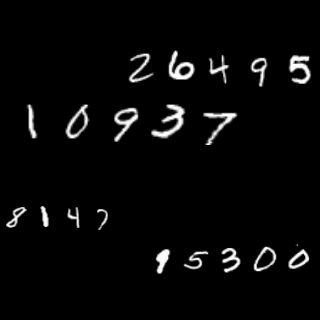 26495
10937
8147
95300